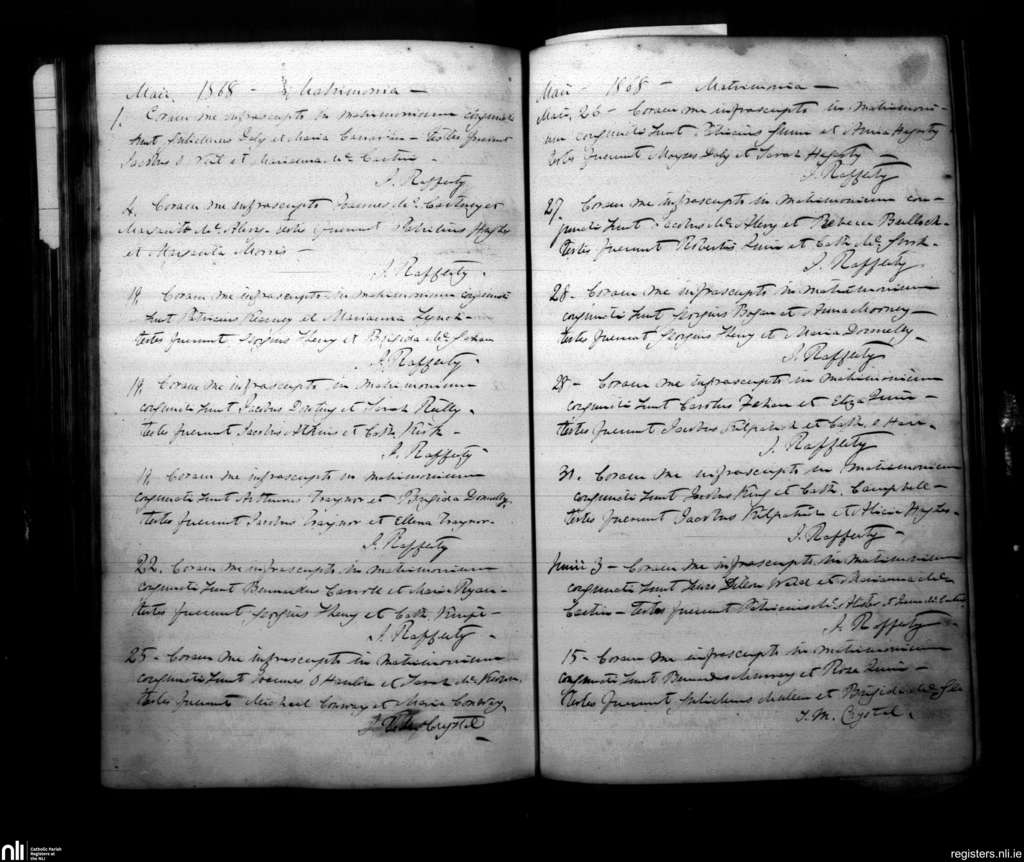 Maii, 1868 - Matrimonia -
1. Coram me infrascripto in matrimonium conjuncti
sunt, Gulielmus Daly et Maria - testes fuerunt
Jacobus O Neil et Marianna Mc
J. Rafferty
4. Coram me infrascripto Joannes Mc Cartney et
Mc testes fuerunt Patricius Hughes
et Morris
J. Rafferty.
19. Coram me infrascripto in matrimonium conjuncti
sunt Patricius Kearney et Marianna Lynch -
testes fuerunt, Georgius Henry et Brigida Mc
J. Rafferty.
19. Coram me infrascripto in matrimonium
conjuncti sunt Jacobus et Sarah Reilly.
testes fuerunt Jacobus et Cath. Kirk -
J. Rafferty -
19. Coram me infrascripto in matrimonium
conjuncti sunt Arthurus Traynor et Brigida Donnelly.
testes fuerunt Jacobus Traynor et Ellena Traynor.
J. Rafferty
22. Coram me infrascripto in matrimonium
conjuncti sunt Bernardus Carroll et Maria Ryan -
testes fuerunt, Georgius Henry et Cath.
J. Rafferty -
25 - Coram me infrascripto in matrimonium
conjuncti sunt Joannes O Hanlon et Sarah Mc
testes fuerunt Michael Conway et Maria Conway.
Crystal
Maii - 1868 - Matrimonia -
Maii, 26 - Coram me infrascripto in matrimoni-
um conjuncti sunt, Patricius et Anna Hagerty
testes fuerunt Moyses Daly et Sarah Hegerty -
J. Rafferty
27. Coram me infrascripto in matrimonium con-
juncti sunt Jacobus Mc et Rebecca Bullock -
testes fuerunt Robertus Quin et Cath. Mc
J. Rafferty.
28 - Coram me infrascripto in matrimonium
conjuncti sunt Georgius Bogan et Anna Mooney -
testes fuerunt Georgius Henry et Maria Donnelly -
J. Rafferty
29 - Coram me infrascripto in matrimonium
conjuncti sunt Carolus et Eliza Quin -
testes fuerunt Jacobus Kilpatrick et Cath. O Hare -
J. Rafferty
31. Coram me infrascripto in matrimonium
conjuncti sunt Jacobus King et Cath. Campbell -
testes fuerunt Jacobus Kilpatrick et Alicia Hughes -
J. Rafferty -
Junii 3 - Coram me infrascripto in matrimonium
conjuncti sunt Dillon et Marianna Mc
- testes fuerunt Patricius Mc et
J. Rafferty
15 - Coram me infrascripto in matrimonium
conjuncti sunt Bernardus Murray et Rosa Quin -
testes fuerunt, Gulielmus Mullen et Brigida Mc
J. M. Crystal.
nli Catholic Parish
Registers at
the NLI
registers.nli.ie